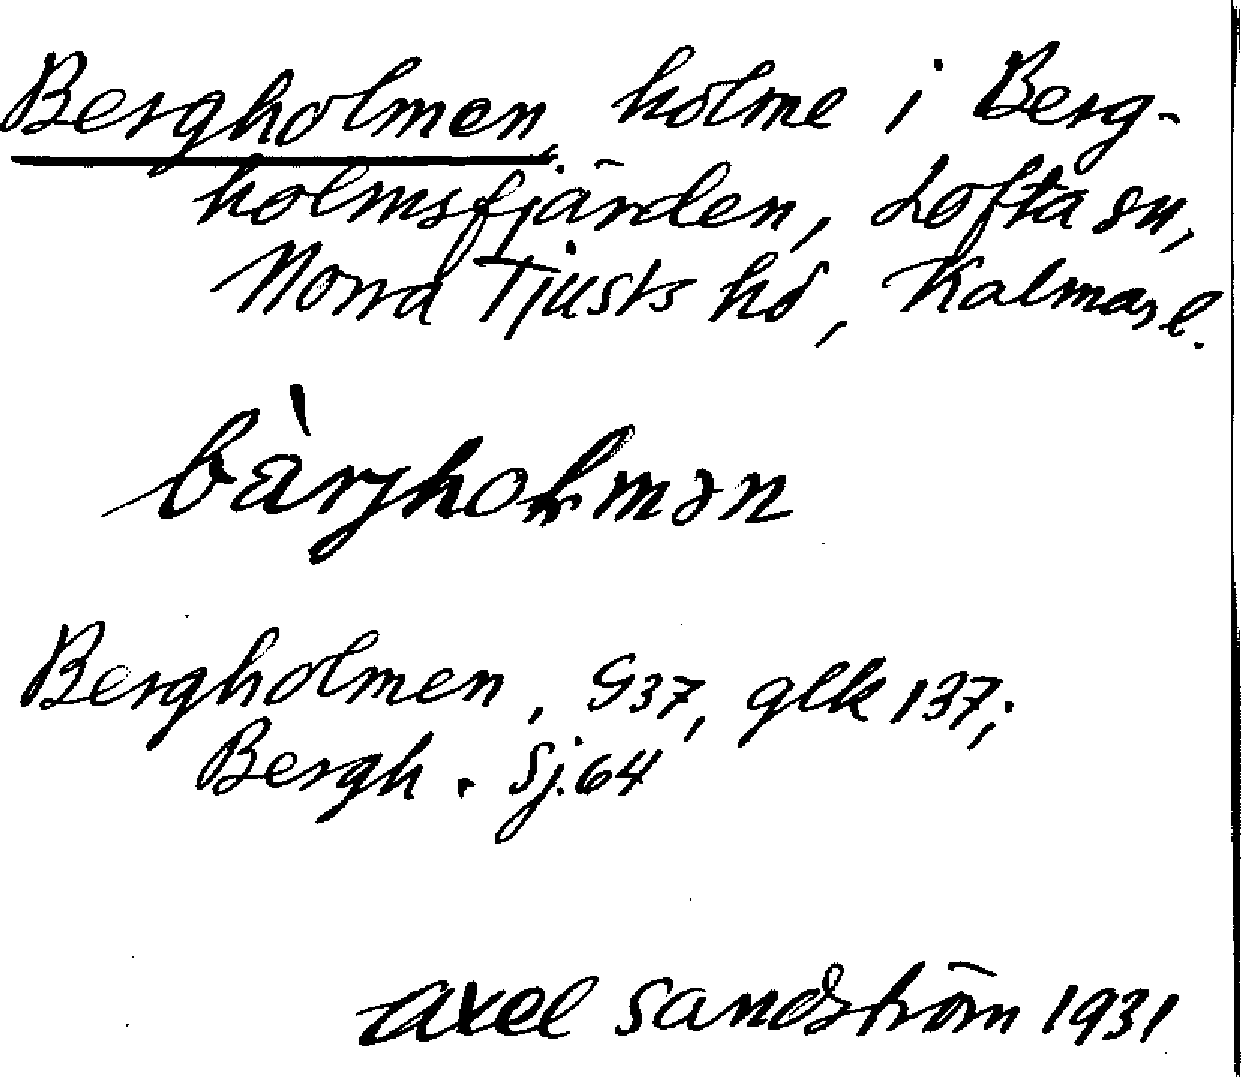 Bergholmen, holme i Berg-
holmsfjärden, Lofta sn,
Norra Tjusts hd, Kalmar l.
bàrjholmən
Bergholmen, G37, glk 137;
Bergh. Sj. 64
Axel Sandström 1931